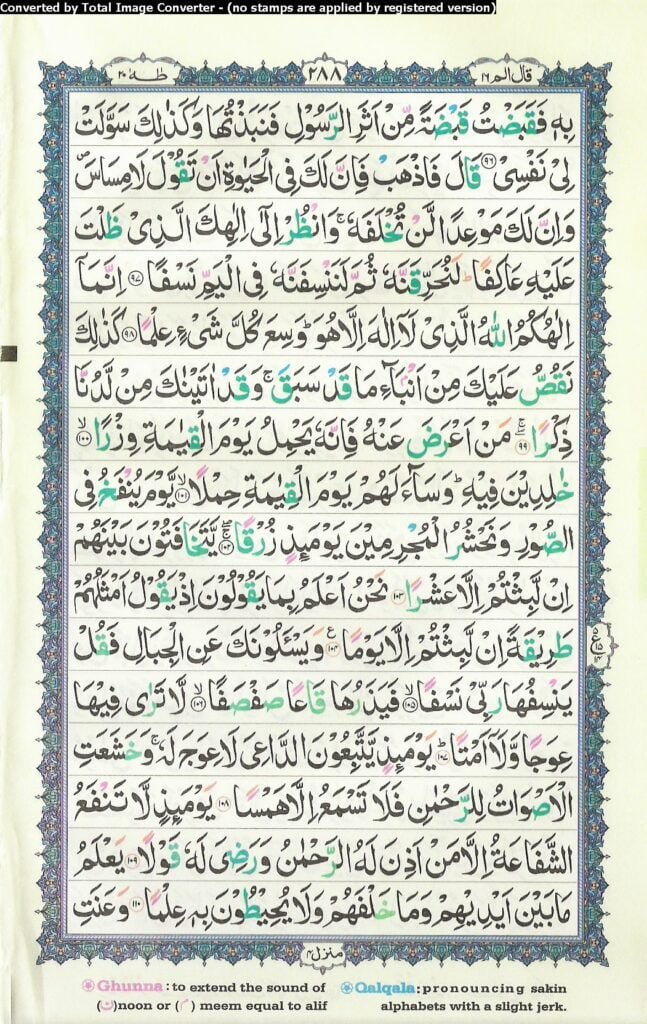 Converted by Total Image Converter - (no stamps are applied by registered version)
قال الم ١٦
٢٨٨
طٰهٰ ٢٠
بِهٖ فَقَبَضْتُ قَبْضَةً مِّنْ اَثَرِ الرَّسُوْلِ فَنَبَذْتُهَا وَكَذٰلِكَ سَوَّلَتْ
لِیْ نَفْسِیْ ﴿٩٦﴾ قَالَ فَاذْهَبْ فَاِنَّ لَكَ فِی الْحَیٰوةِ اَنْ تَقُوْلَ لَا مِسَاسَ۪
وَاِنَّ لَكَ مَوْعِدًا لَّنْ تُخْلَفَهٗ ۚ وَانْظُرْ اِلٰٓی اِلٰهِكَ الَّذِیْ ظَلْتَ
عَلَیْهِ عَاكِفًا ؕ لَنُحَرِّقَنَّهٗ ثُمَّ لَنَنْسِفَنَّهٗ فِی الْیَمِّ نَسْفًا ﴿٩٧﴾ اِنَّمَاۤ
اِلٰهُكُمُ اللّٰهُ الَّذِیْ لَاۤ اِلٰهَ اِلَّا هُوَ ؕ وَسِعَ كُلَّ شَیْءٍ عِلْمًا ﴿٩٨﴾ كَذٰلِكَ
نَقُصُّ عَلَیْكَ مِنْ اَنْۢبَآءِ مَا قَدْ سَبَقَ ۚ وَقَدْ اٰتَیْنٰكَ مِنْ لَّدُنَّا
ذِكْرًا ﴿٩٩﴾ مَنْ اَعْرَضَ عَنْهُ فَاِنَّهٗ یَحْمِلُ یَوْمَ الْقِیٰمَةِ وِزْرًا ﴿١٠٠﴾ۙ
خٰلِدِیْنَ فِیْهِ ؕ وَسَآءَ لَهُمْ یَوْمَ الْقِیٰمَةِ حِمْلًا ﴿١٠١﴾ۙ یَّوْمَ یُنْفَخُ فِی
الصُّوْرِ وَنَحْشُرُ الْمُجْرِمِیْنَ یَوْمَئِذٍ زُرْقًا ﴿١٠٢﴾ یَّتَخَافَتُوْنَ بَیْنَهُمْ
اِنْ لَّبِثْتُمْ اِلَّا عَشْرًا ﴿١٠٣﴾ نَحْنُ اَعْلَمُ بِمَا یَقُوْلُوْنَ اِذْ یَقُوْلُ اَمْثَلُهُمْ
طَرِیْقَةً اِنْ لَّبِثْتُمْ اِلَّا یَوْمًا ﴿١٠٤﴾ وَیَسْـَٔلُوْنَكَ عَنِ الْجِبَالِ فَقُلْ
یَنْسِفُهَا رَبِّیْ نَسْفًا ﴿١٠٥﴾ۙ فَیَذَرُهَا قَاعًا صَفْصَفًا ﴿١٠٦﴾ۙ لَّا تَرٰی فِیْهَا
عِوَجًا وَّلَاۤ اَمْتًا ﴿١٠٧﴾ؕ یَوْمَئِذٍ یَّتَّبِعُوْنَ الدَّاعِیَ لَا عِوَجَ لَهٗ ۚ وَخَشَعَتِ
الْاَصْوَاتُ لِلرَّحْمٰنِ فَلَا تَسْمَعُ اِلَّا هَمْسًا ﴿١٠٨﴾ یَوْمَئِذٍ لَّا تَنْفَعُ
الشَّفَاعَةُ اِلَّا مَنْ اَذِنَ لَهُ الرَّحْمٰنُ وَرَضِیَ لَهٗ قَوْلًا ﴿١٠٩﴾ یَعْلَمُ
مَا بَیْنَ اَیْدِیْهِمْ وَمَا خَلْفَهُمْ وَلَا یُحِیْطُوْنَ بِهٖ عِلْمًا ﴿١١٠﴾ وَعَنَتِ
منزل ٤
Ghunna : to extend the sound of
(ن) noon or (م) meem equal to alif
Qalqala : pronouncing sakin
alphabets with a slight jerk.